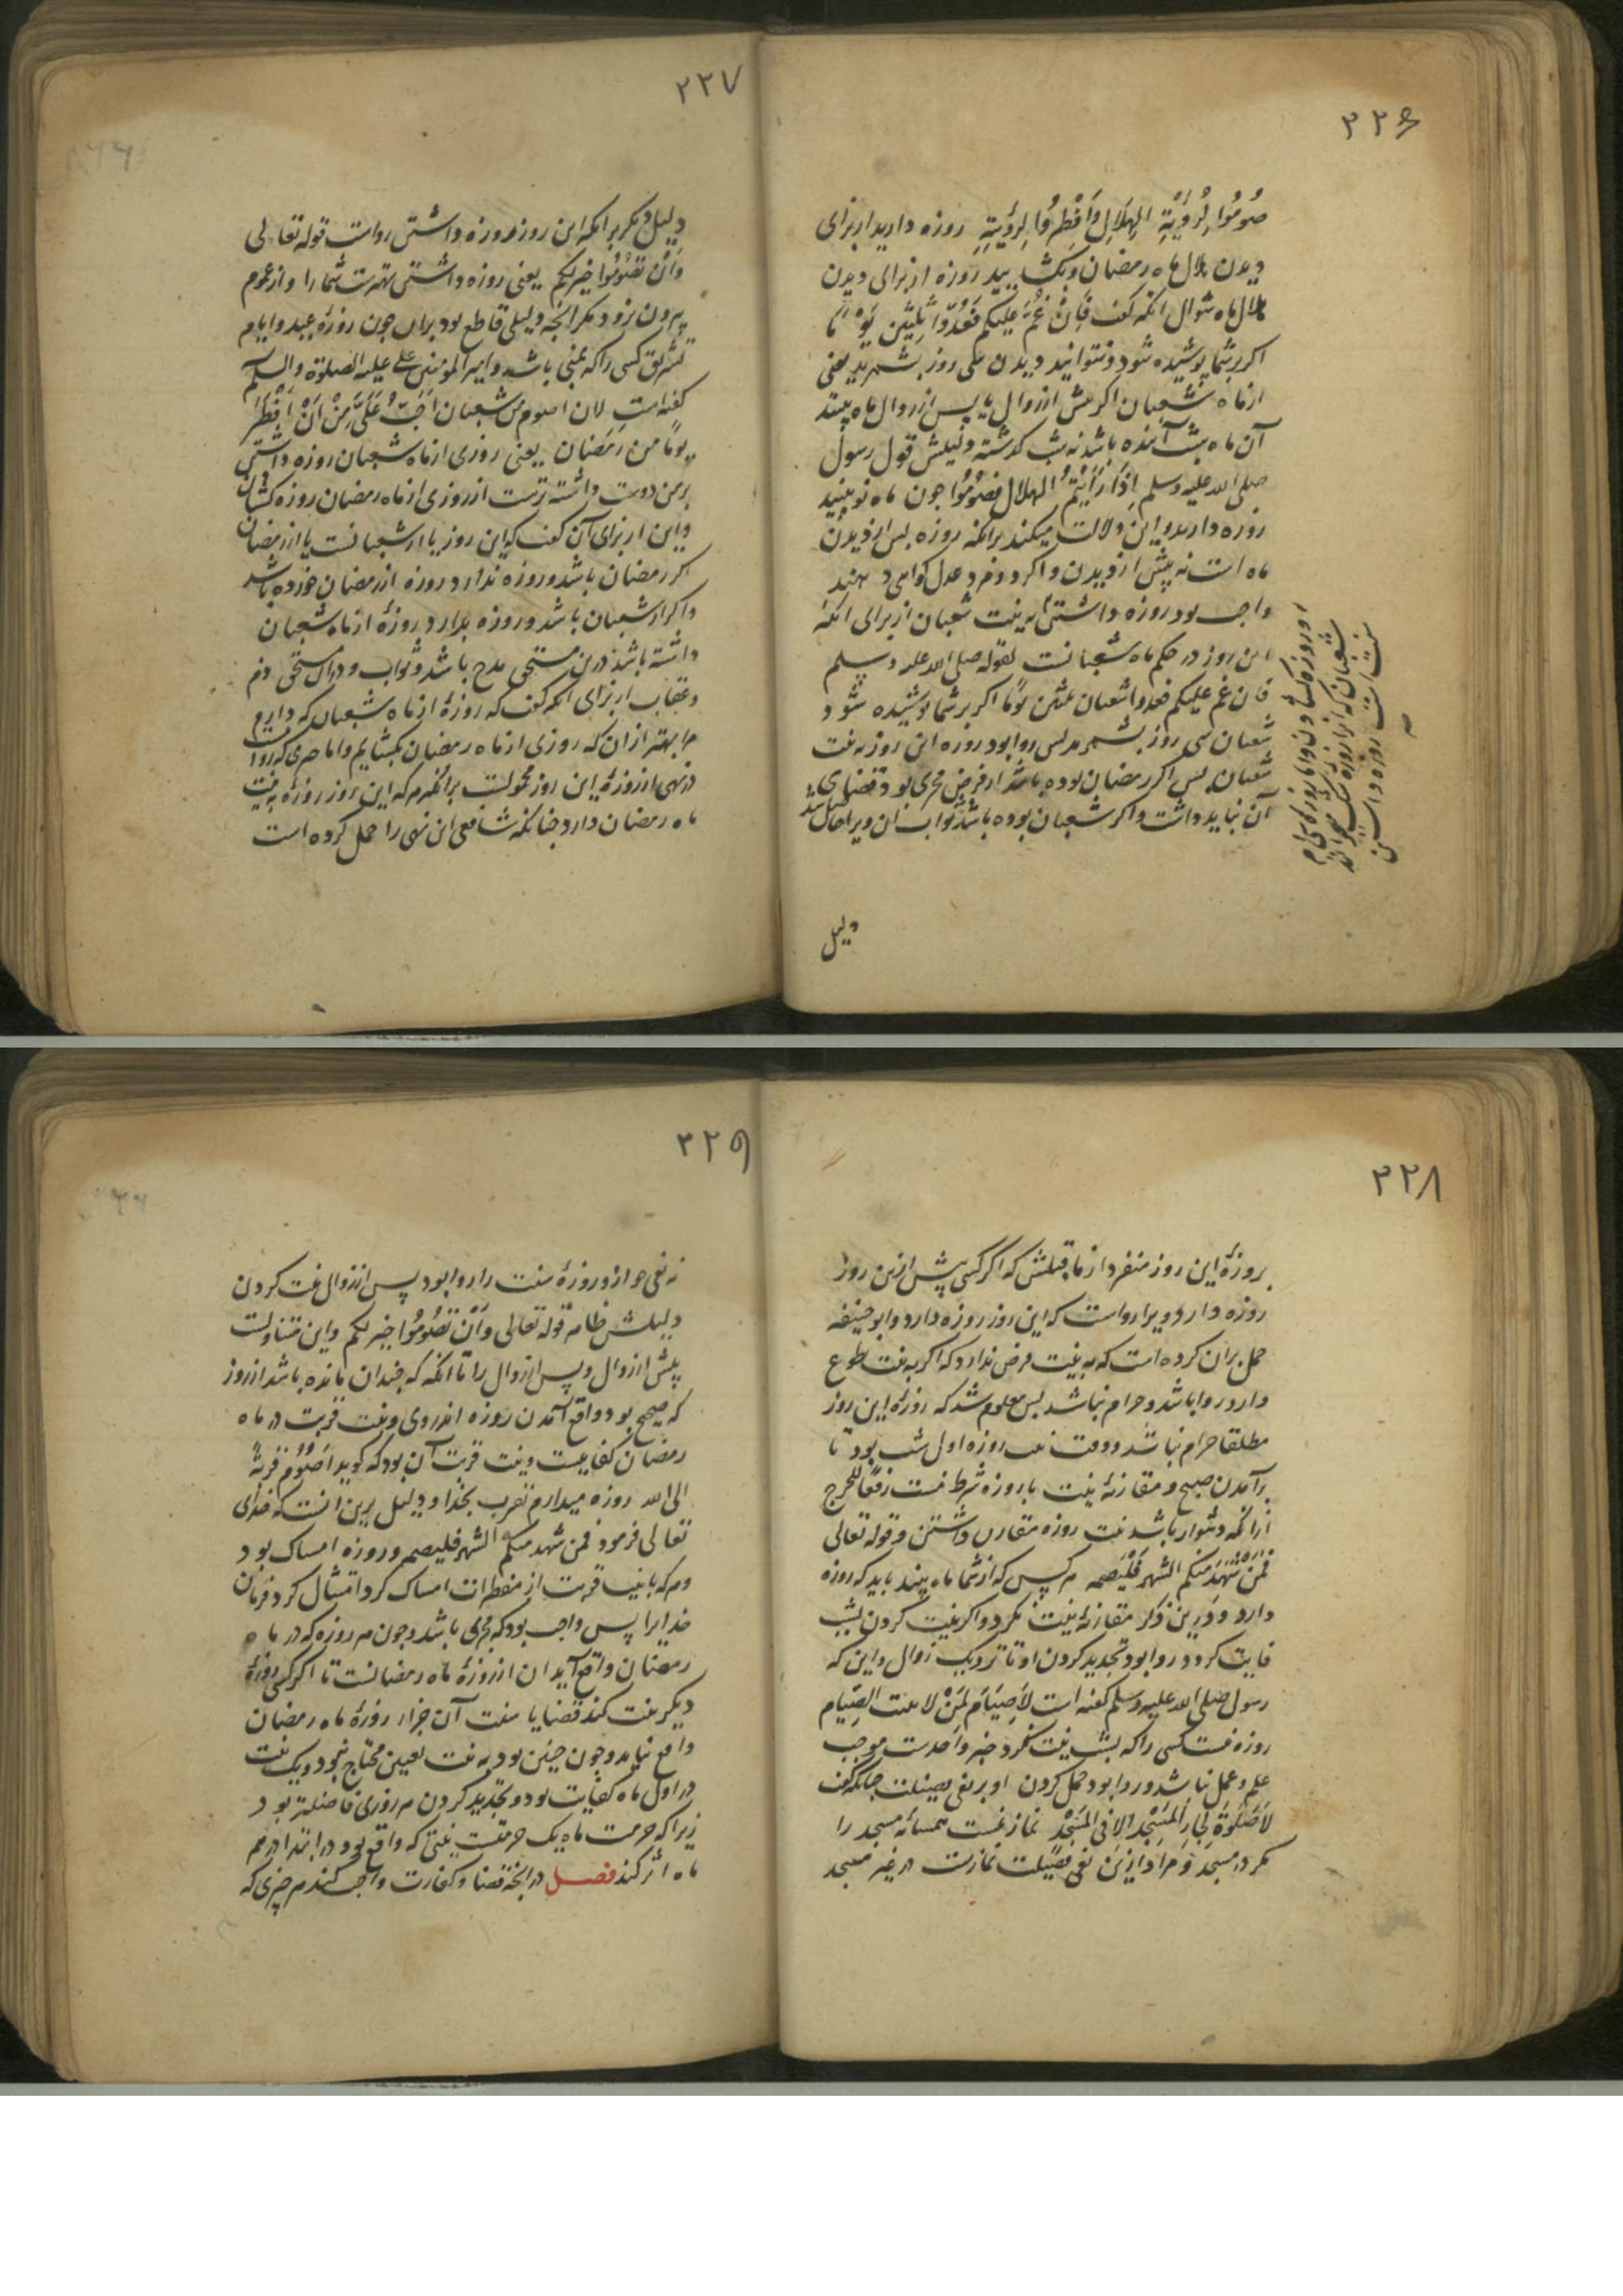 ۲۲۶
صُومُوا لِرُؤْيَةِ الهِلَالِ وَأَفْطِرُوا لِرُؤْيَتِهِ روزه دارید از برای
دیدن هلال ماه رمضان و بکشایید روزه از برای دیدن
هلال ماه شوال انکه کفت فَاِنْ غُمَّ عَلَيْكُم فَعُدّوا ثلثین یَوْمًا
اکر بر شما پوشیده شود و نتوانید دیدن سی روز بشمرید یعنی
از ماه شعبان اکر پیش از زوال یا پس از زوال ماه بینند
آن ماه شب آینده باشد نه شب کذشته دلیلش قول رسول
صلی الله علیه وسلم اِذَا رَأَیْتُمُ الهلال فصُومُوا چون ماه نو بینید
روزه دارید و این دلالت میکند برانکه روزه پس از دیدن
ماه است نه پیش از دیدن و اکر دو مرد عدل کواهی دهند
واجب بود روزه داشتن به نیت شعبان از برای انکه
این روز در حکم ماه شعبانست لقوله صلی الله علیه وسلم
فان غم علیکم فعدوا شعبان ثلثین یومًا اکر بر شما پوشیده شود
شعبان سی روز بشمرید پس روا بود روزه این روز به نیت
شعبان پس اکر رمضان بوده باشد از فرض مجزی بود و قضای
آن نباید داشت و اکر شعبان بوده باشد ثواب آن ویرا حاصل باشد
دلیل
۲۲۷
دلیل دیکر برانکه این روز روزه داشتن رواست قوله تعالی
وَاَنْ تصُومُوا خیر لکم یعنی روزه داشتن بهترست شما را و از عموم
بیرون نرود مکر انچه دلیلی قاطع بود بران چون روزه عید و ایام
تشریق کسی را که بمنی باشد و امیر المومنین علی علیه الصلوة والسلم
کفته است لان اصوم من شعبان اَحَبُّ عَلَیَّ مِنْ اَنْ اَفْطُرَ
یومًا من رمضان یعنی روزی از ماه شعبان روزه داشتن
بر من دوست داشته ترست از روزی از ماه رمضان روزه کشادن
و این از برای آن کفت که این روز یا از شعبانست یا از رمضان
اکر رمضان باشد و روزه ندارد روزه از رمضان خورده باشد
و اکر از شعبان باشد و روزه بدارد روزهٔ از ماه شعبان
داشته باشد درین مستحق مدح باشد و ثواب و دران مستحق ذم
و عقاب از برای انکه کفت که روزهٔ از ماه شعبان که دارم
مرا بهتر از ان که روزی از ماه رمضان بکشایم و اما خبری که روا
در نهی از روزهٔ این روز محمولست برانکه مردم که این روز روزه به نیت
ماه رمضان دارد چنانکه شافعی این نهی را حمل کرده است
۲۲۸
بروزهٔ این روز منفرد از ماقبلش که اکر کسی پیش ازین روز
روزه دارد ویرا رواست که این روز روزه دارد و ابو حنیفه
حمل بران کرده است که به نیت فرض ندارد که اکر به نیت تطوع
دارد روا باشد و حرام نباشد پس معلوم شد که روزهٔ این روز
مطلقا حرام نباشد و وقت نیت روزه اول شب بود تا
برآمدن صبح و مقارنهٔ نیت با روزه شرط نیست رفعًا للحرج
ازانکه دشوار باشد نیت روزه مقارن داشتن و قوله تعالی
فَمَنْ شَهِدَ منکم الشهر فَلْیَصُمه هر کس که از شما ماه بیند باید که روزه
دارد و درین ذکر مقارنهٔ نیت نکرد و اکر نیت کردن بشب
فایت کردد روا بود تجدید کردن او تا نزدیک زوال و این که
رسول صلی الله علیه وسلم کفته است لَاصِیَامَ لِمَنْ لا یبیت الصِّیَام
روزه نیست کسی را که بشب نیت نکرد خبر واحدست موجب
علم و عمل نباشد و روا بود حمل کردن او بر نفی فضیلت چنانکه کفت
لَاصَلٰوةَ لِجَارِ المَسْجِدِ اِلا فی المَسْجِدِ نماز نیست همسایهٔ مسجد را
مکر در مسجد و مراد ازین نفی فضیلت نمازست در غیر مسجد
۲۲۹
نه نفی جواز و روزهٔ سنت را روا بود پس از زوال نیت کردن
دلیلش ظاهر قوله تعالی وَاَنْ تصُومُوا خیر لکم و این متناولست
پیش از زوال و پس از زوال را تا انکه که چندان مانده باشد از روز
که صحیح بود واقع آمدن روزه اندروی و نیت قربت در ماه
رمضان کفایتست و نیت قربت آن بود که کوید اَصُومُ قُربَةً
الی الله روزه میدارم تقرب بخدا و دلیل برین انست که خدای
تعالی فرمود فمن شهد منکم الشهر فلیصمه و روزه امساک بود
و هر که با نیت قربت از مفطرات امساک کرد امتثال کرد فرمان
خدایرا پس واجب بود که مجزی باشد و چون هر روزه که در ماه
رمضان واقع آید ان از روزهٔ ماه رمضانست تا اکر کسی روزهٔ
دیکر نیت کند قضا یا سنت آن جز از روزهٔ ماه رمضان
واقع نیاید و چون چنین بود به نیت تعیین محتاج نبود و یک نیت
در اول ماه کفایت بود و تجدید کردن هر روزی فاضلتر بود
زیرا که حرمت ماه یک حرمتست نیتی که واقع بود در ابتدا در همه
ماه اثر کند فصل در انچه قضا و کفارت واجب کند هر چیزی که